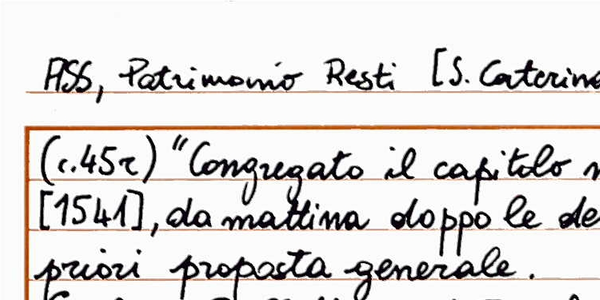 ASS, Patrimonio Resti [S. Caterina
(c.45r) "Congregato il capitolo
[1541], da mattina doppo le de
priori proposta generale.